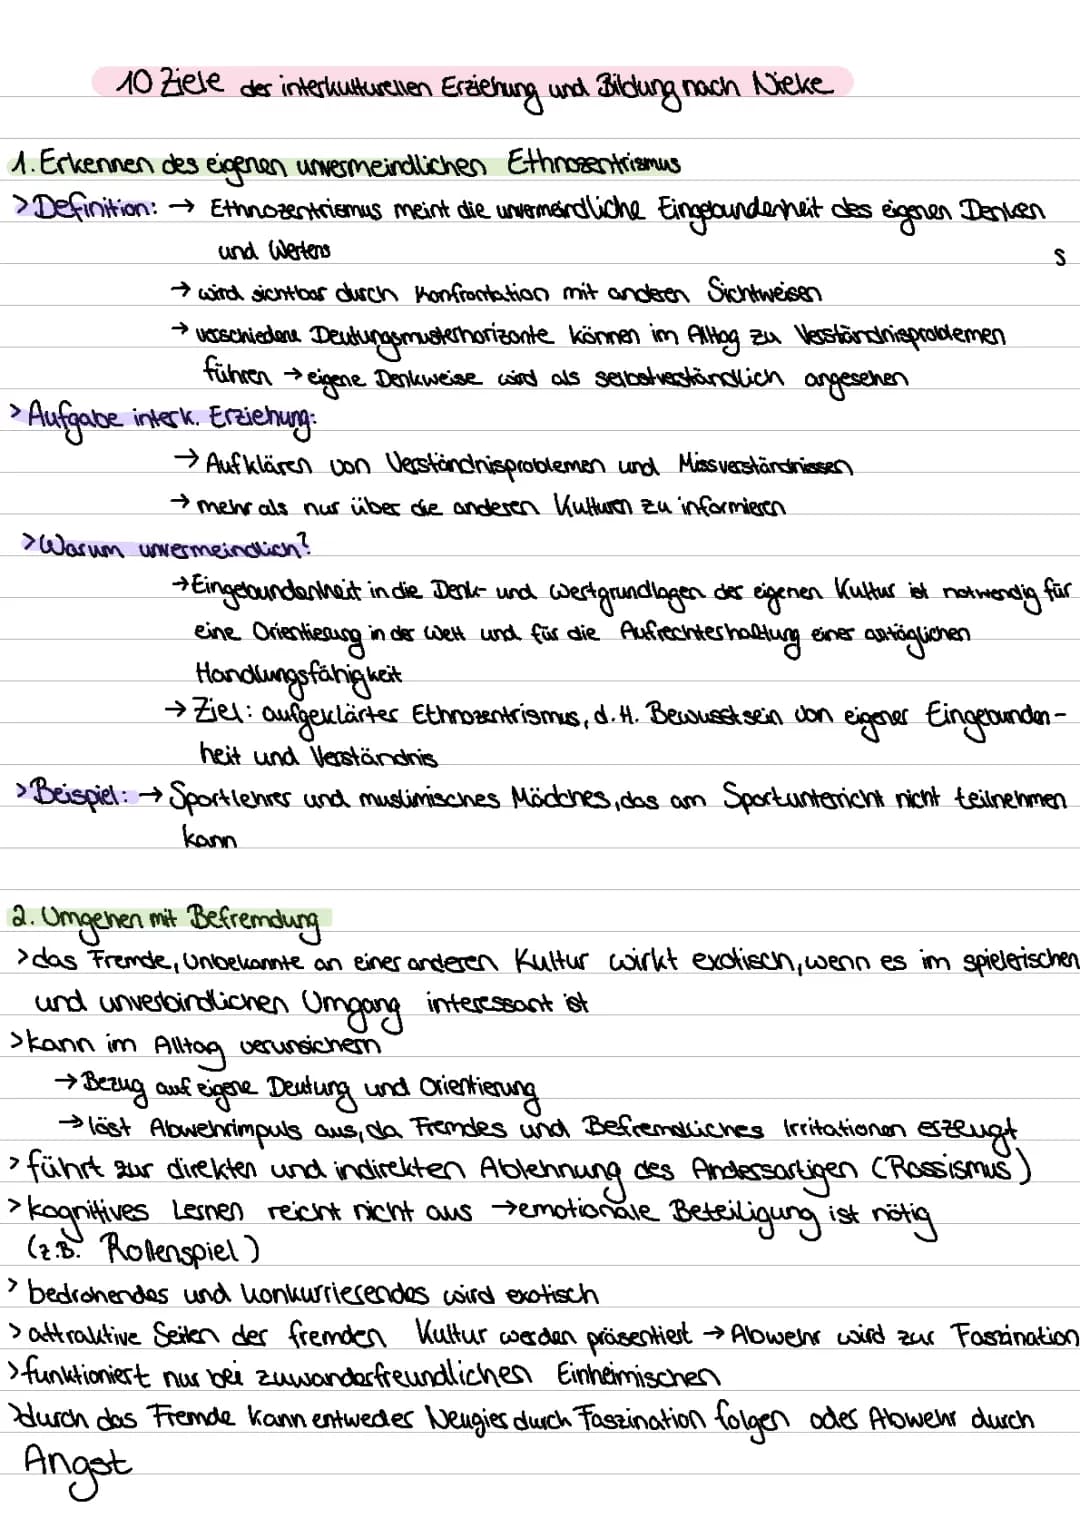 10 Ziele der interkulturellen Erziehung und Bildung nach Nieke
1. Erkennen des eigenen unvermeindlichen Ethnozentrismus
> Definition: → Ethnozentrismus meint die unvermeindliche Eingebundenheit des eigenen Denken
und Wertens s
→ wird sichtbar durch Konfrontation mit anderen Sichtweisen
→ verschiedene Deutungsmusterhorizonte können im Alltag zu Verständnisproblemen
führen → eigene Denkweise wird als selbstverständlich angesehen
> Aufgabe interk. Erziehung:
→ Aufklären von Verständnisproblemen und Missverständnissen
→ mehr als nur über die anderen Kulturen zu informieren
> Warum unvermeindlich?
→ Eingebundenheit in die Denk- und Wertgrundlagen der eigenen Kultur ist notwendig für
eine Orientierung in der Welt und für die Aufrechterhaltung einer alltäglichen
Handlungsfähigkeit
→ Ziel: aufgeklärter Ethnozentrismus, d.H. Bewusstsein von eigener Eingebunden-
heit und Verständnis
> Beispiel: → Sportlehrer und muslimisches Mädchen, das am Sportunterricht nicht teilnehmen
kann
2. Umgehen mit Befremdung
> das Fremde, Unbekannte an einer anderen Kultur wirkt exotisch, wenn es im spielerischen
und unverbindlichen Umgang interessant ist
> kann im Alltag verunsichern
→ Bezug auf eigene Deutung und Orientierung
→ löst Abwehrimpuls aus, da Fremdes und Befremdliches Irritationen erzeugt
> führt zur direkten und indirekten Ablehnung des Andersartigen (Rassismus)
> kognitives Lernen reicht nicht aus → emotionale Beteiligung ist nötig
(z.B. Rollenspiel)
> bedrohendes und konkurrierendes wird exotisch
> attraktive Seiten der fremden Kultur werden präsentiert → Abwehr wird zur Faszination
> funktioniert nur bei zuwanderfreundlichen Einheimischen
> durch das Fremde kann entweder Neugier durch Faszination folgen oder Abwehr durch
Angst